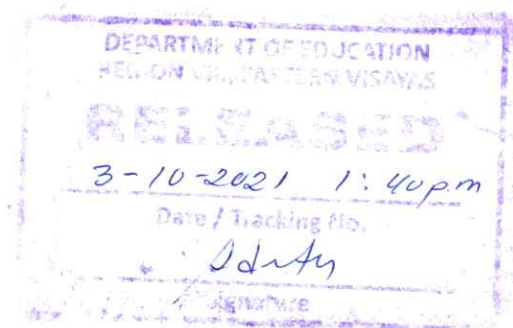 DEPARTMENT OF EDUCATION
REGION VIII, EASTERN VISAYAS
RELEASED
3-10-2021 1:40pm
Date / Tracking No.
Signature